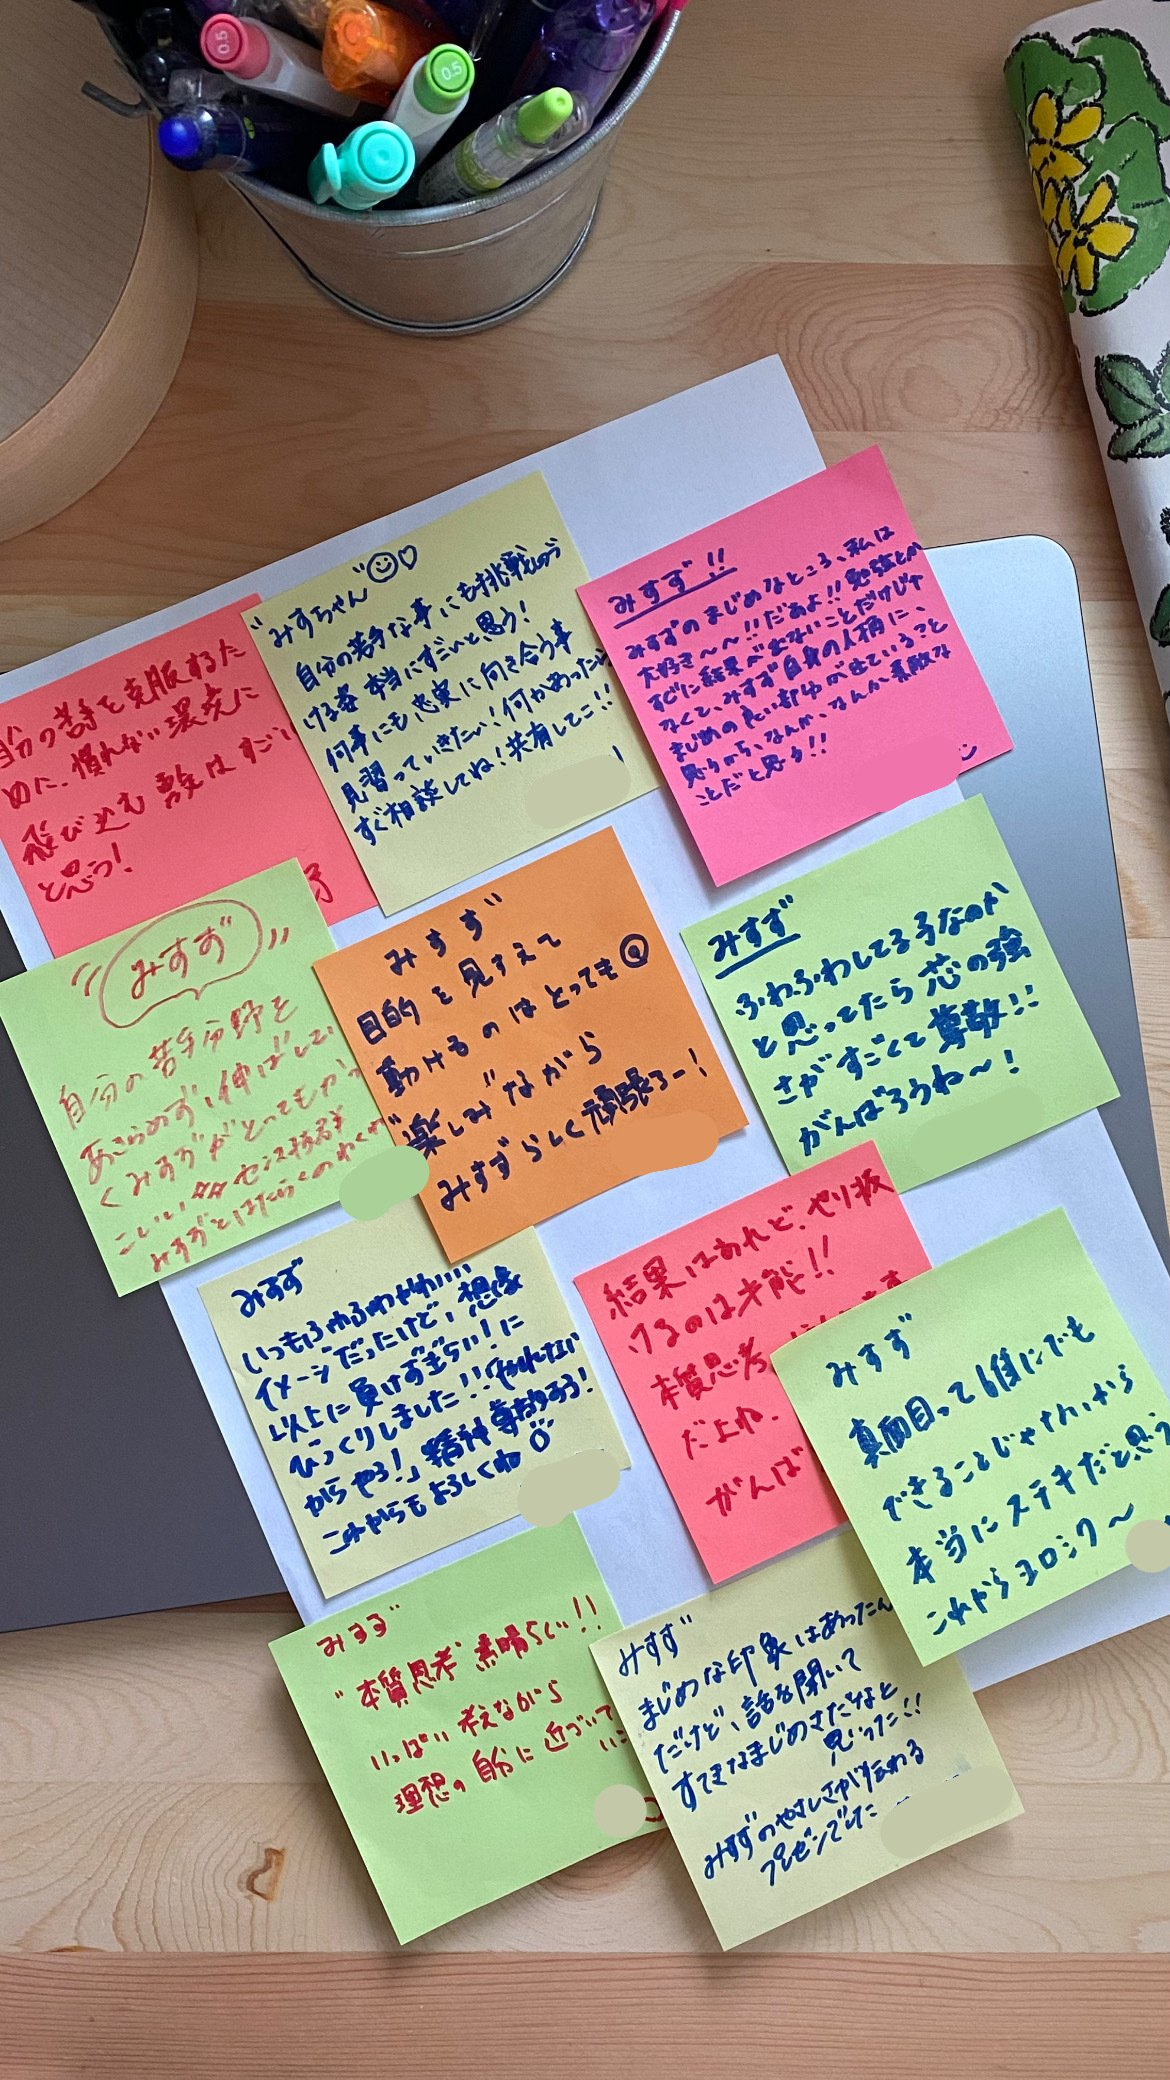 0.5
0.5
自分の苦手を克服するた
めに、慣れない環境に
飛び込む姿はすごい
と思う!
"みすちゃん"
自分の苦手な事にも挑戦しつづ
ける姿本当にすごいと思う!
何事にも忠実に向き合う事
見習っていきたい!何かあったら
すぐ相談してね!共有してこ!!
みすず!!
みすずのまじめなところ、私は
大好き〜〜!!だぁよ!!勉強とか
すぐに結果が出ないことだけじゃ
なくて、みすず自身の人柄に、
まじめの良い部分が出ていること
思うから、なんか、なんか素敵な
ことだと思う!!
"みすず"
自分の苦手分野を
あきらめず、伸ばしてい
くみすずがとってもかっ
こいい
みすずとはたらくのわくわ
みすず
目的を見すえて
動けるのはとっても◎
楽しみながら
みすずらしく頑張ろー!
みすず
ふわふわしてる子なのか
と思ってたら芯の強
さがすごくて尊敬!!
がんばろうね〜!
みすず
いつもふわふわかわいい
イメージだったけど、想像
以上に負けず嫌い!に
びっくりしました!!「やれない
からやろ!」精神尊敬すろ!
これからもよろしくね
結果はあれど、やり抜
けるのは才能!!
本質思考
だよね、
がんば
みすず
真面目って1番にでも
できることじゃないから
本当にステキだと思う
これからヨロシク〜
みすず
"本質思考"素晴らしい!!
いっぱい考えながら
理想の自分に近づいて
いこ
みすず
まじめな印象はあったん
だけど、話を聞いて
すてきなまじめさだなと
思った!!
みすずのやさしさが伝わる
プレゼンでした